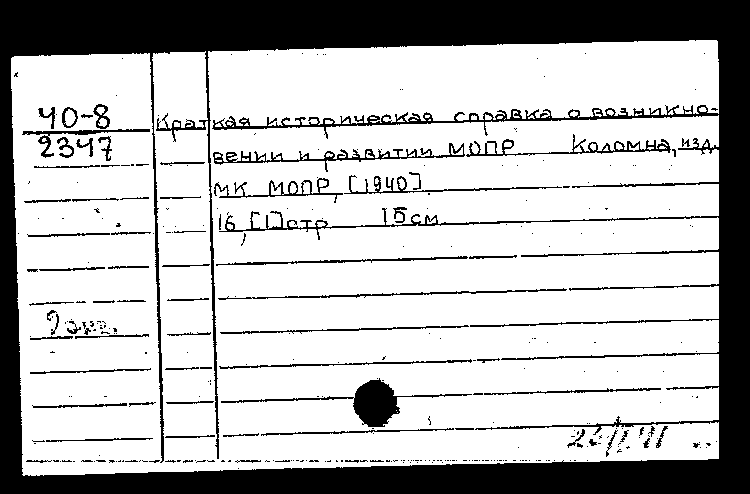 40-8
2347
Краткая историческая справка о возникно-
вении и развитии МОПР Коломна, изд.
МК МОПР, [1940]
16, [1]стр 15см
2 экз.